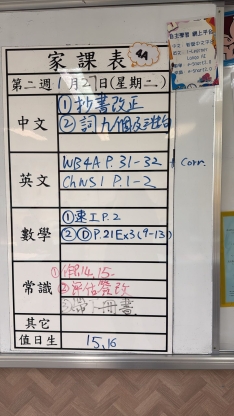 家課表 4A
第二週 1月2日(星期二)
中文
①抄書改正
②詞九個及注白
英文
WB4A P.31-32 + Corr.
Ch WS1 P.1-2
數學
①速工P.2
②D P.21 Ex3 (9-13)
常識
14, 15
②評估發改
③帶 冊書
其它
值日生
15, 16
自主學習 網上平台